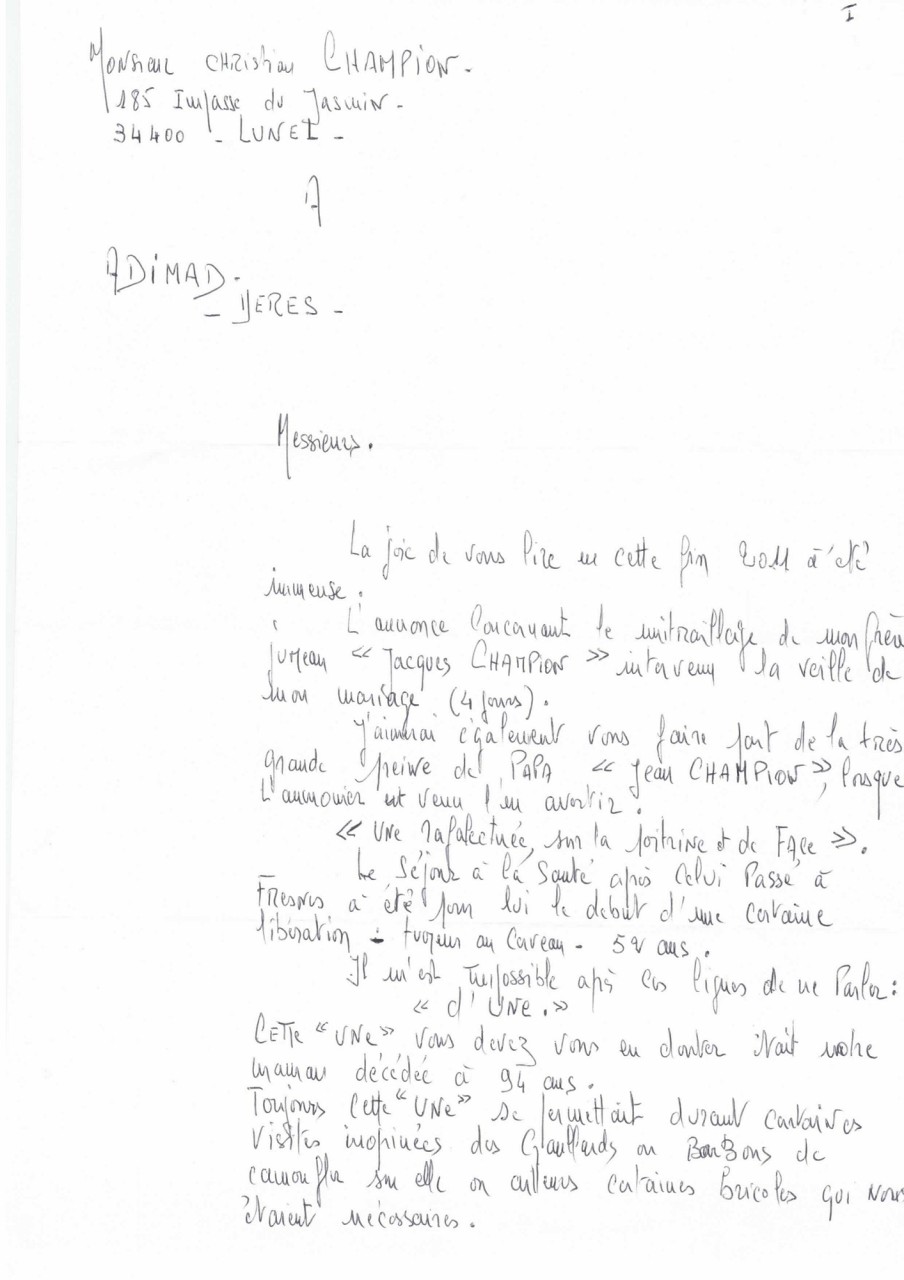 I
Monsieur CHRistian CHAMPION.
185 Impasse du Jasmin -
34400 - LUNEL -
A
ADiMAD -
- YERES -
Messieurs.
La joie de vous lire en cette fin 2011 à été
immense.
L'annonce Concernant le mitraillage de mon frère
jumeau « Jacques CHAMPION » intervenu la veille de
mon mariage (4 jours).
J'aimerai également vous faire part de la très
grande peine de PAPA « Jean CHAMPION », lorsque
L'aumonier est venu l'en avertir.
« UNE Rafale sur la poitrine et de FAce ».
Le séjour à la Santé après celui Passé à
FResnes à été pour lui le début d'une certaine
libération - au Caveau - 52 ans.
Il m'est Impossible après ces lignes de ne Parler:
« d'UNE. »
CETTe « UNe » vous devez vous en douter était notre
maman décédée à 94 ans.
Toujours Cette « UNe » se permettait durant certaines
visites inopinées des ou BarBons de
camoufler sur elle ou ailleurs certaines bricoles qui nous
étaient nécessaires.